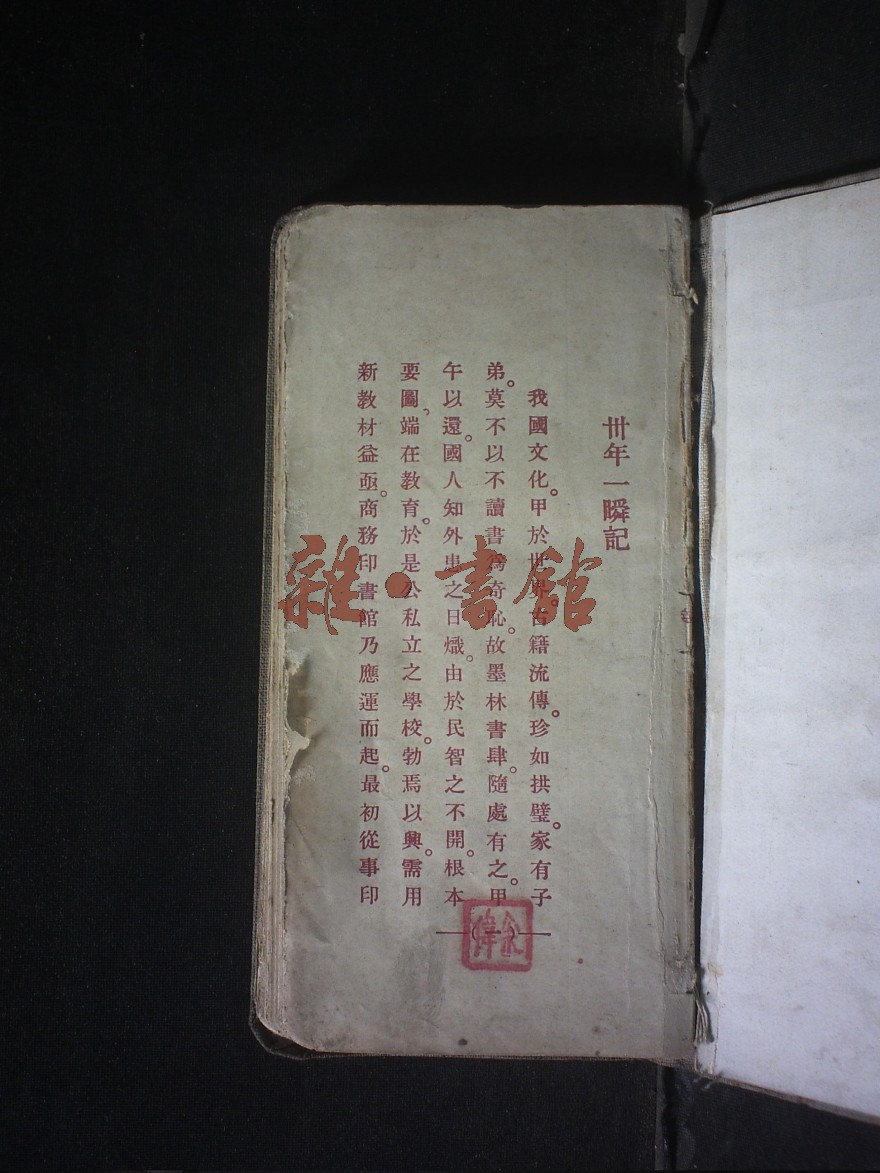 卅年一瞬記
我國文化。甲於世界。古籍流傳。珍如拱璧。家有子
弟。莫不以不讀書爲奇恥。故墨林書肆。隨處有之。甲
午以還。國人知外患之日熾。由於民智之不開。根本
要圖。端在教育。於是公私立之學校。勃焉以興。需用
新教材益亟。商務印書館乃應運而起。最初從事印
(一)
雜·書館